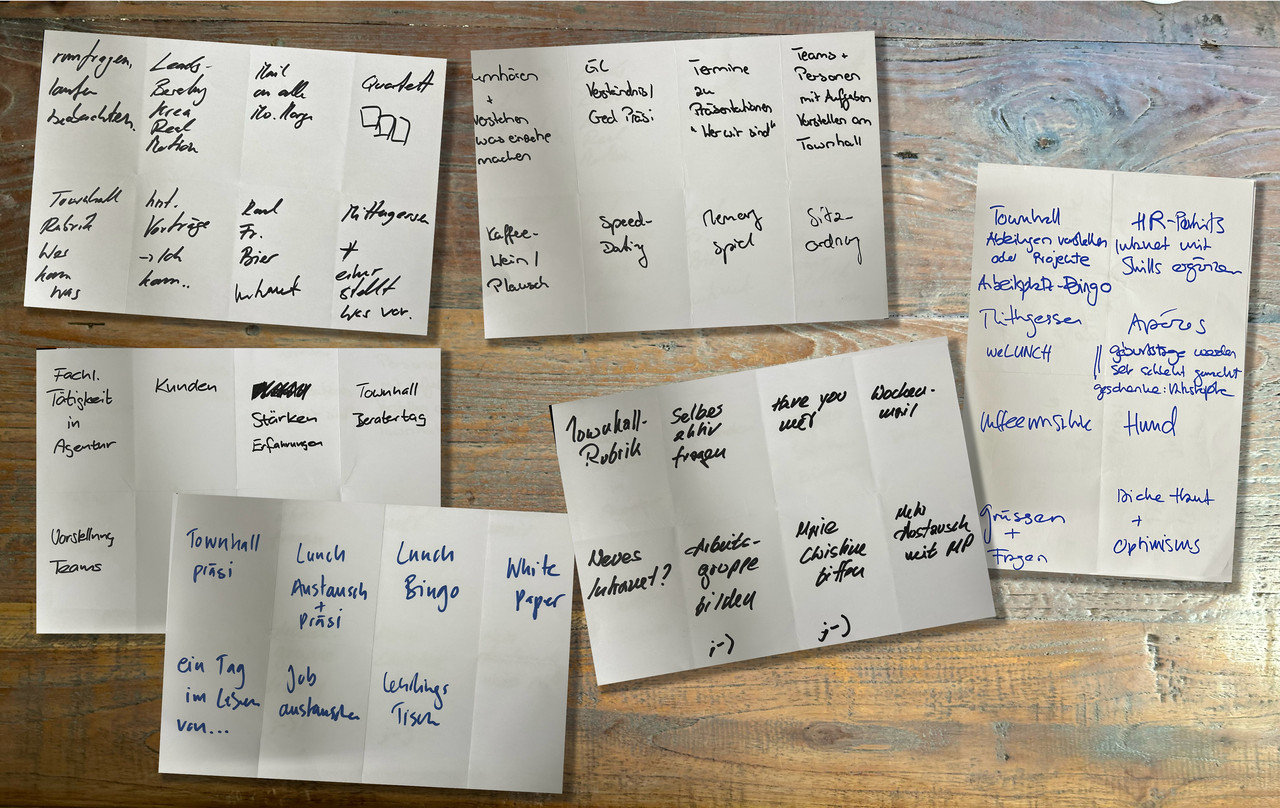 rumfragen,
laufen
beobachten.
Leads-
Krea
Mail
an alle
Mo. Morge
Quartett
Townhall
Rubrik
Wer
kann
was
int.
Vorträge
→ Ich
kann..
Fr.
Bier
Intranet
Mittagessen
+
einer
stellt
was vor.
umhören
+
verstehen
was einzelne
machen
GL
Verständnis/
Ged Präsi
Termine
zu
Präsentationen
"Wer wir sind"
Teams +
Personen
mit Aufgaben
Vorstellen am
Townhall
Kaffee-
Wein/
Plausch
Speed-
Dating
Memory
Spiel
Sitz-
ordnung
Townhall
Abteilungen vorstellen
oder Projekte
Arbeitsplatz-Bingo
Mittagessen
weLUNCH
Grüssen
+
Fragen
HR-Porträts
Intranet mit
Skills ergänzen
Apéros
geburtstage werden
sehr schlecht gemacht
geschenke: Katastrophe
Hund
Dicke Haut
+
Optimisms
Fachl.
Tätigkeit
in
Agentur
Kunden
Stärken
Erfahrungen
Townhall
Beratertag
Vorstellung
Teams
Townhall-
Rubrik
Selber
aktiv
fragen
Have you
met
Wochen-
mail
Neues
Intranet?
Arbeits-
gruppe
bilden
;-)
Marie
Christine
bitten
;-)
Mehr
Austausch
mit MP
Townhall
präsi
Lunch
Austausch
+
präsi
Lunch
Bingo
White
paper
ein Tag
im Leben
von...
Job
austauschen
Lehrlings
Tisch